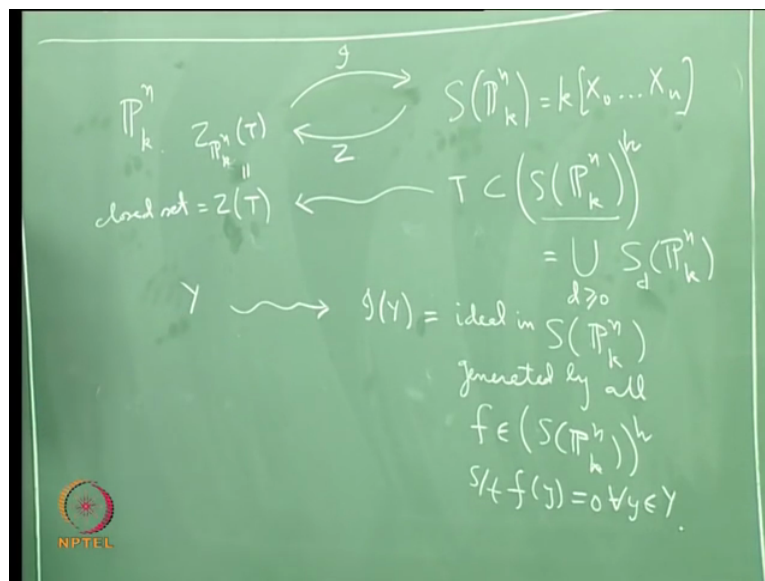 𝓘
ℙⁿₖ Z_{ℙⁿₖ}(T) Z S(ℙⁿₖ) = k[X₀...Xₙ]
||
closed set = Z(T) T ⊂ (S(ℙⁿₖ))ʰ
= ⋃_{d≥0} S_d(ℙⁿₖ)
Y 𝓘(Y) = ideal in S(ℙⁿₖ)
generated by all
f ∈ (S(ℙⁿₖ))ʰ
s/t f(y) = 0 ∀ y ∈ Y.
NPTEL